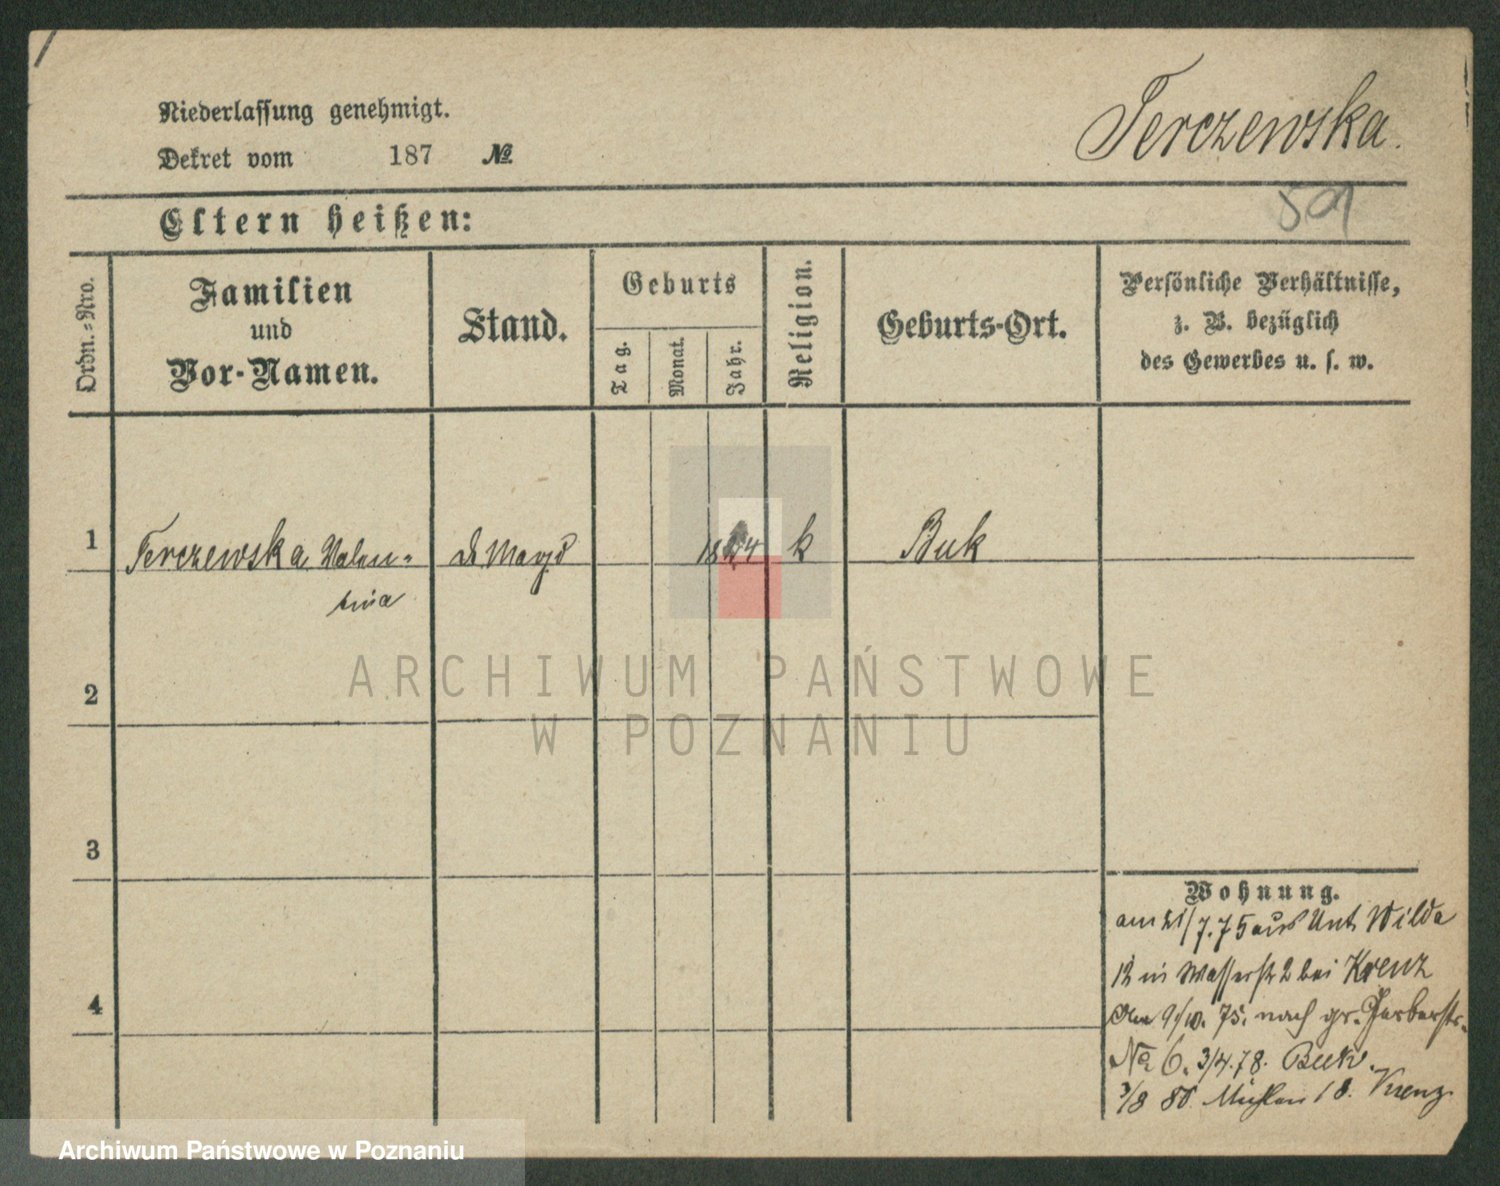 Niederlassung genehmigt.
Dekret vom 187 №
Terczewska.
501
Eltern heißen:
Ordn.-Nro.
Familien
und
Vor-Namen.
Stand.
Geburts
Tag.
Monat.
Jahr.
Religion.
Geburts-Ort.
Persönliche Verhältnisse,
z. B. bezüglich
des Gewerbes u. s. w.
1 Terczewska Valen-
tina
d. Magd k Buk
2
3
4
Wohnung.
am 21/7.75 aus Unt. Wilda
12 in Wasserstr 2 bei Krenz
Am 9/10. 75. nach gr. Gerberstr.
№ 6. 3/4.78.
3/8 80. Mühlen 18. Krenz.
ARCHIWUM PAŃSTWOWE
W POZNANIU
Archiwum Państwowe w Poznaniu